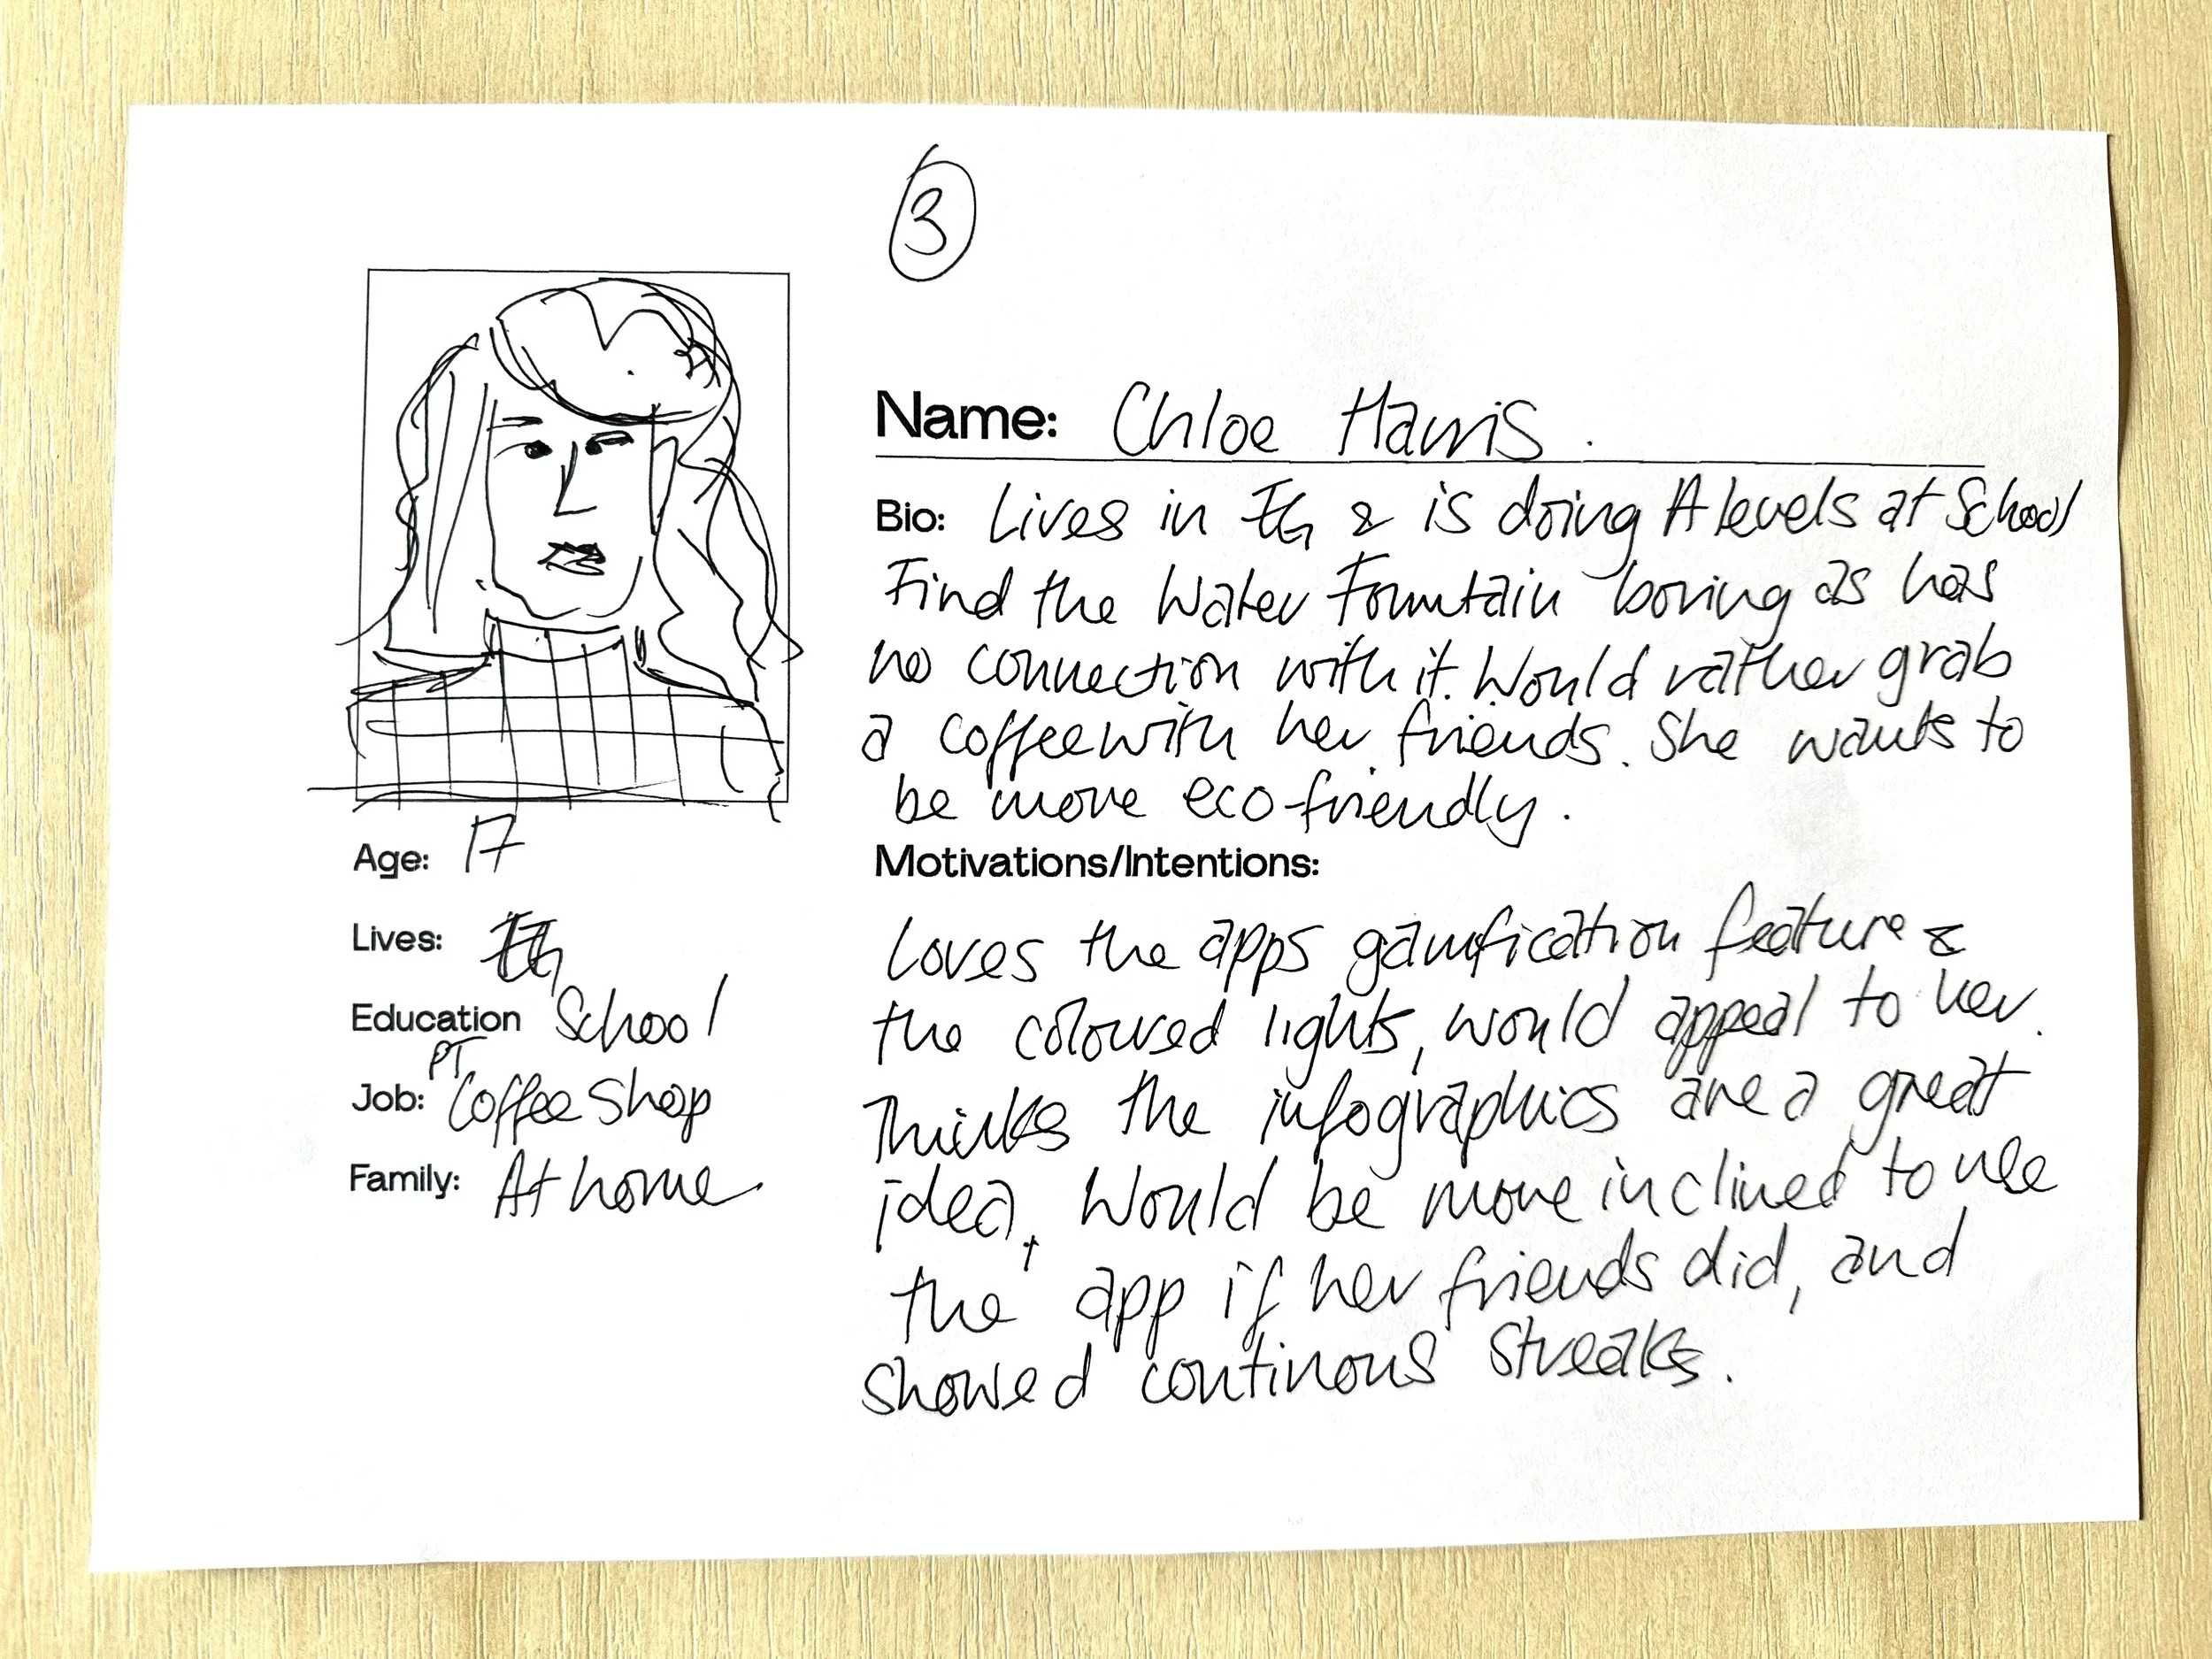 3
Name: Chloe Harris.
Bio: Lives in EG & is doing A levels at School
Find the Water Fountain boring as has
no connection with it. Would rather grab
a coffee with her friends. She wants to
be more eco-friendly.
Age: 17
Lives: EG
Education School
PT
Job: Coffee Shop
Family: At home
Motivations/Intentions:
Loves the apps gamification feature &
the coloured lights, would appeal to her.
Thinks the infographics are a great
idea, Would be more inclined to use
the app if her friends did, and
showed continous streaks.